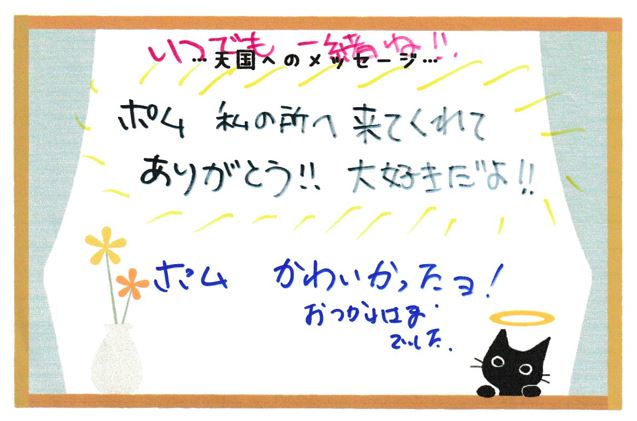 いつでも一緒ね!!
…天国へのメッセージ…
ポム 私の所へ来てくれて
ありがとう!! 大好きだよ!!
ポム かわいかったョ!
おつかれさま
でした.